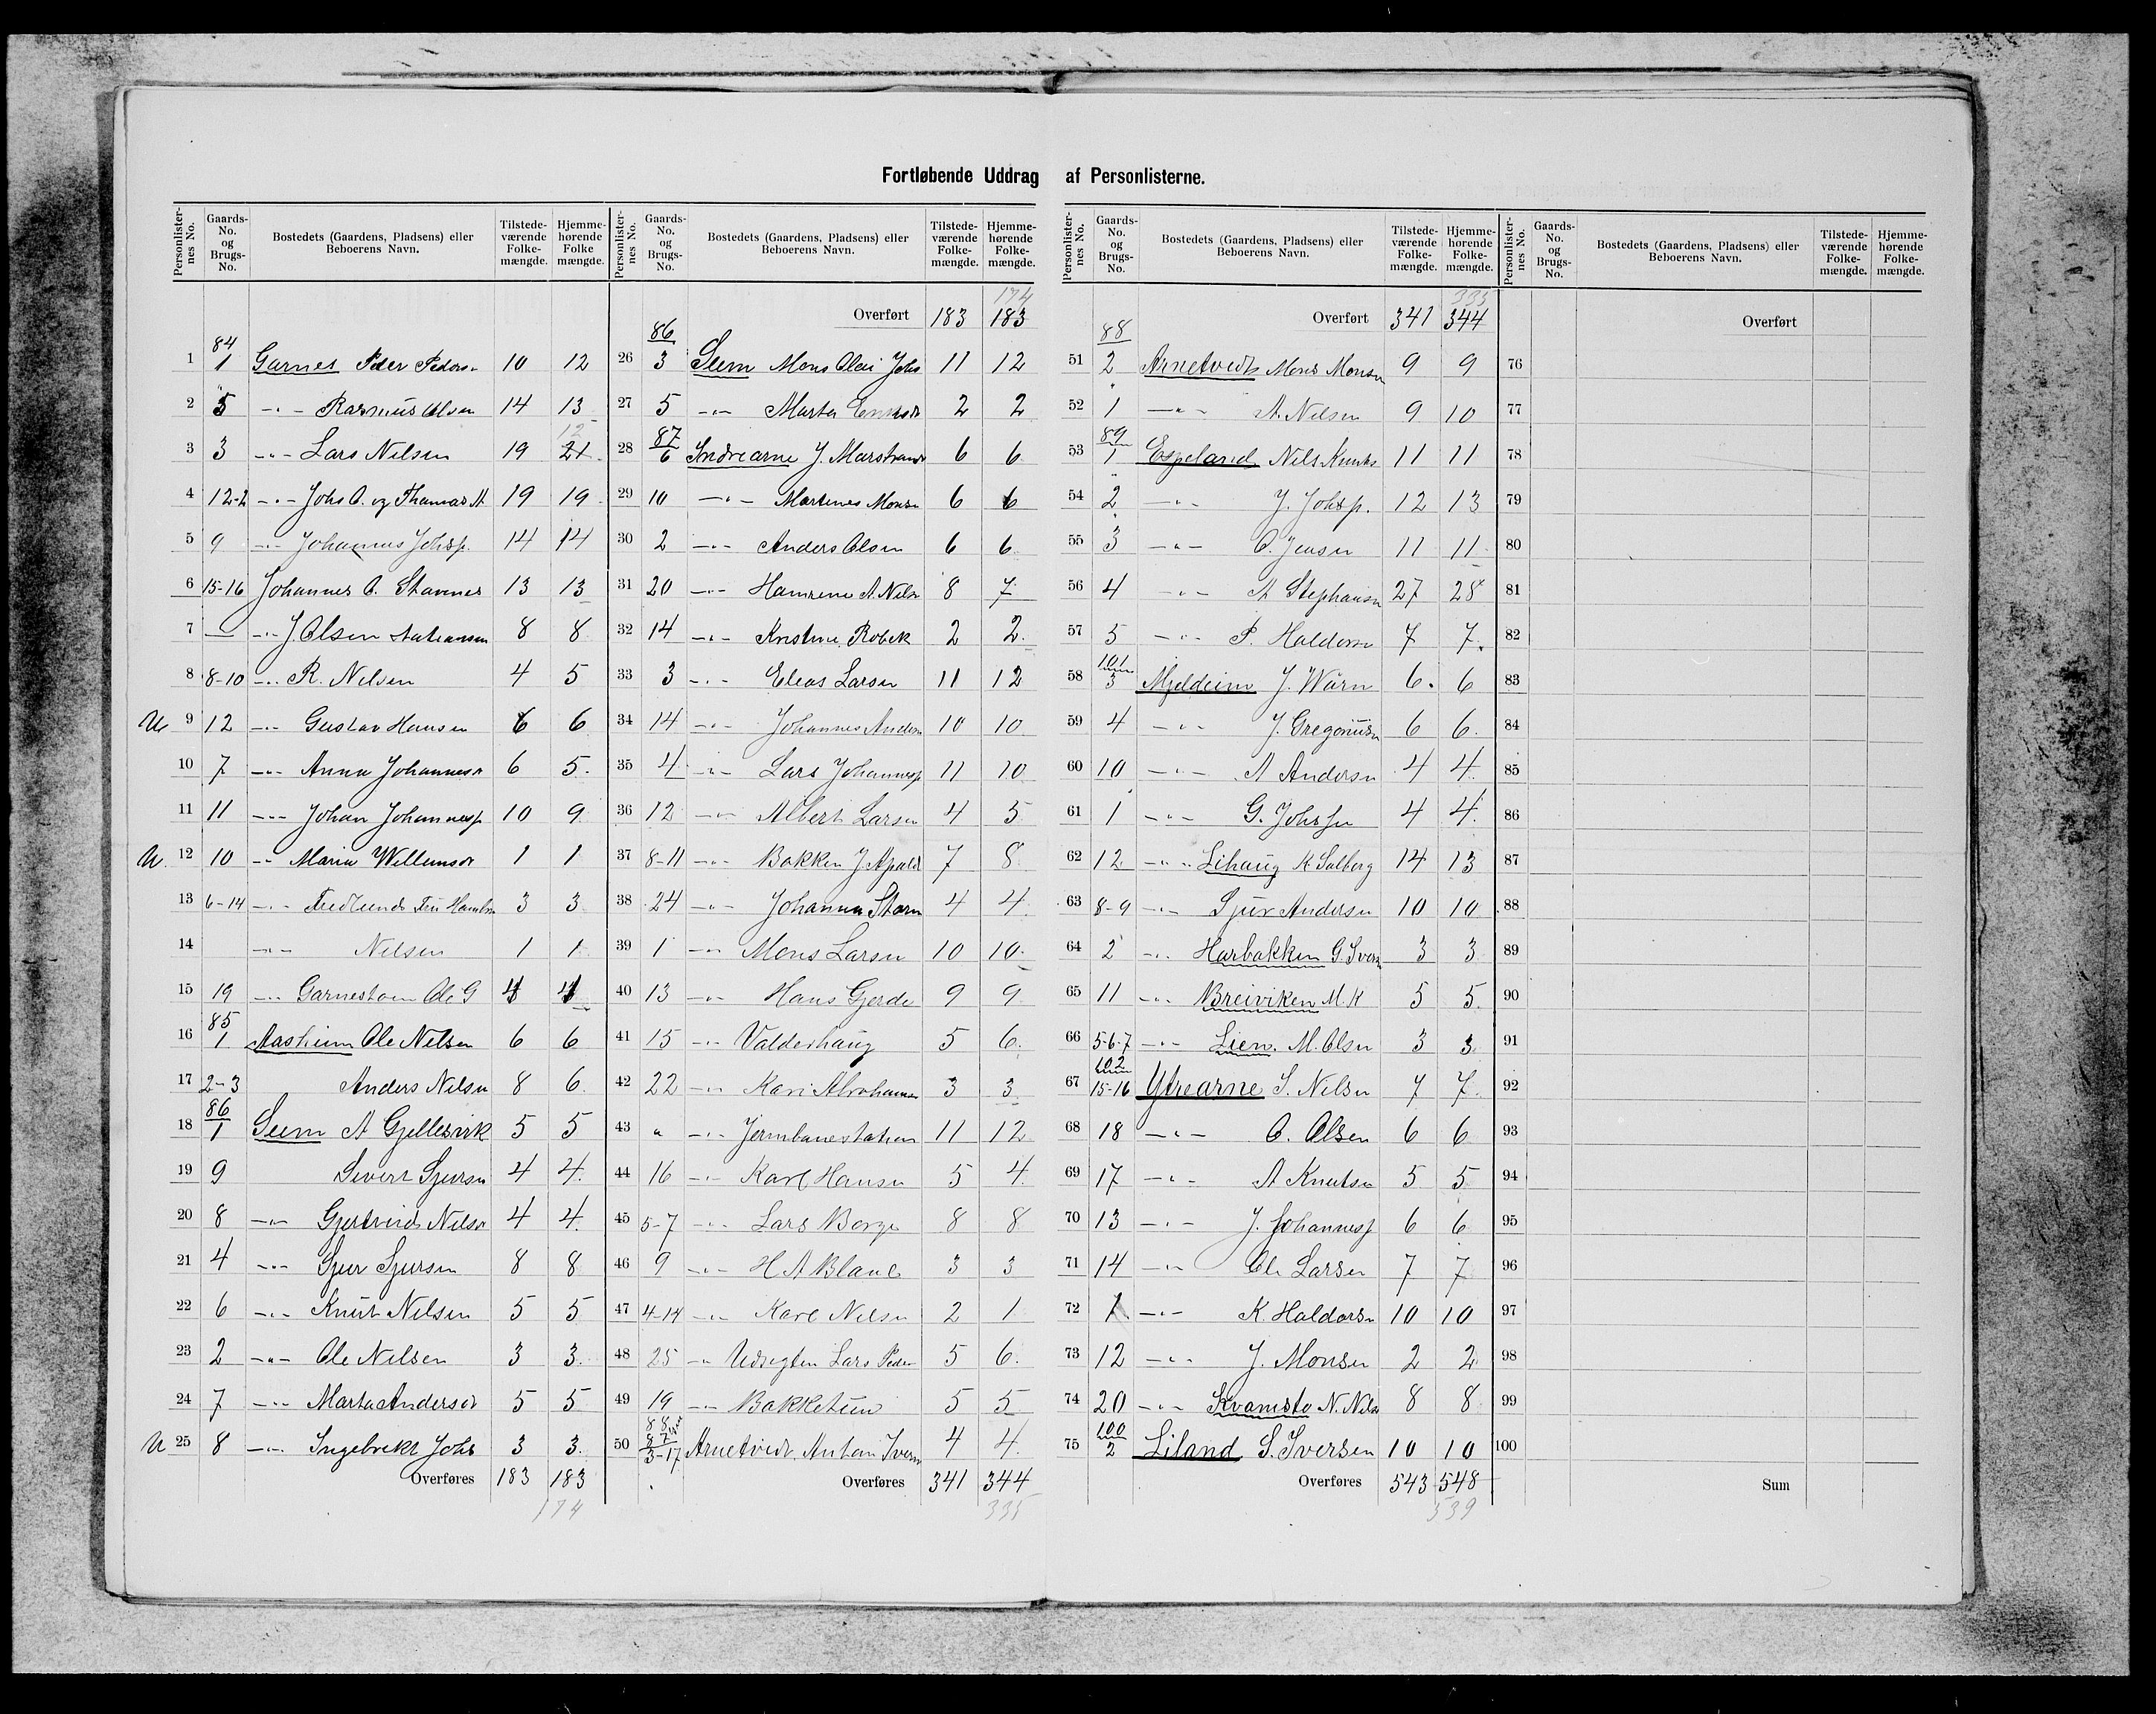 Fortløbende Uddrag af Personlisterne.
Personlisternes No. Gaards-No. og Brugs-No. Bostedets (Gaardens, Pladsens) eller Beboerens Navn. Tilstedeværende Folkemængde. Hjemmehørende Folkemængde.
84
1 1 Garnes Peder Peders. 10 12
2 5 -"- Rasmus Olsen 14 13
12
3 3 -"- Lars Nilsen 19 21
4 12-2 -"- Johs O. og Thomas A. 19 19
5 9 -"- Johannes Johsp. 14 14
6 15-16 Johannes O. Stavenes 13 13
7 — -"- J. Olsen 8 8
8 8-10 -"- R. Nilsen 4 5
U 9 12 -"- Gustav Hansen 6 6
10 7 -"- Anna Johannesdr 6 5
11 11 -"- Johan Johannesp 10 9
U. 12 10 -"- Maria Willumsdr 1 1
13 6-14 -"- 3 3
14 -"- Nilsen 1 1
15 19 -"- Ole G 4 4
85
16 1 Aasheim Ole Nilsen 6 6
17 2-3 Anders Nilsn 8 6
86
18 1 Seim A Gjellesvik 5 5
19 9 Sivert Sjursn 4 4
20 8 -"- Gjertrud Nilsdr 4 4
21 4 -"- Sjur Sjursen 8 8
22 6 -"- Knut Nilsen 5 5
23 2 -"- Ole Nilsen 3 3
24 7 -"- Marta Andersdr 5 5
U 25 8 -"- Ingebrekt Johs 3 3
Overføres 183 183
174
Personlisternes No. Gaards-No. og Brugs-No. Bostedets (Gaardens, Pladsens) eller Beboerens Navn. Tilstedeværende Folkemængde. Hjemmehørende Folkemængde.
174
Overført 183 183
86
26 3 Seim Mons Olai Johs 11 12
27 5 -"- Marta 2 2
87
28 6 Indrearne J. Marstrand 6 6
29 10 -"- Martines Monsn 6 6
30 2 -"- Anders Olsen 6 6
31 20 -"- A. Nilsn 8 7
32 14 -"- Kristine Robek 2 2
33 3 -"- Elias Larsen 11 12
34 14 -"- Johannes Andersn 10 10
35 4 -"- Lars Johannesp 11 10
36 12 -"- Albert Larsen 4 5
37 8-11 -"- Bakken J Apald 7 8
38 24 -"- Johanna Storm 4 4
39 1 -"- Mons Larsen 10 10
40 13 -"- Hans Gjerde 9 9
41 15 -"- Valderhaug 5 6
42 22 -"- Kari Abrahamsen 3 3
43 " -"- Jernbanestation 11 12
44 16 -"- Karl Hansen 5 4
45 5-7 -"- Lars Borge 8 8
46 9 -"- H A Blanc 3 3
47 4-14 -"- Karl Nilsen 2 1
48 25 -"- Udsigten Lars Peder 5 6
49 19 -"- Bakketun 5 5
88
87
50 3-17 Arnetvedt. Anton Iversn 4 4
Overføres 341 344
335
Personlisternes No. Gaards-No. og Brugs-No. Bostedets (Gaardens, Pladsens) eller Beboerens Navn. Tilstedeværende Folkemængde. Hjemmehørende Folkemængde.
335
Overført 341 344
88
51 2 Arnetvedt Mons Monsn 9 9
52 1 -"- A. Nilsen 9 10
89
53 1 Espeland Nils Knuts 11 11
54 2 -"- J. Johsp. 12 13
55 3 -"- O. Jensen 11 11
56 4 -"- A Stephansn 27 28
57 5 -"- P. Haldorsn 7 7
101
58 3 Mjeldeim J. Wärn 6 6
59 4 -"- J. Gregoriusn 6 6
60 10 -"- A Andersn 4 4
61 1 -"- G. Johsson 4 4
62 12 -"- Lihaug K. Solberg 14 13
63 8-9 -"- Sjur Andersen 10 10
64 2 -"- Harbakken G. Iversn 3 3
65 11 -"- Breiviken M. K 5 5
66 5-6-7 -"- Lien. M. Olsn 3 3
102
67 15-16 Ytrearne S. Nilsn 7 7
68 18 -"- O. Olsen 6 6
69 17 -"- A Knutsn 5 5
70 13 -"- J. Johannesp 6 6
71 14 -"- Ole Larsen 7 7
72 1 -"- K. Haldorsn 10 10
73 12 -"- J. Monsen 2 2
74 20 -"- Kvamsto N. Nilsn 8 8
100
75 2 Liland S. Iversen 10 10
Overføres 543 548
539
Personlisternes No. Gaards-No. og Brugs-No. Bostedets (Gaardens, Pladsens) eller Beboerens Navn. Tilstedeværende Folkemængde. Hjemmehørende Folkemængde.
Overført
76
77
78
79
80
81
82
83
84
85
86
87
88
89
90
91
92
93
94
95
96
97
98
99
100
Sum